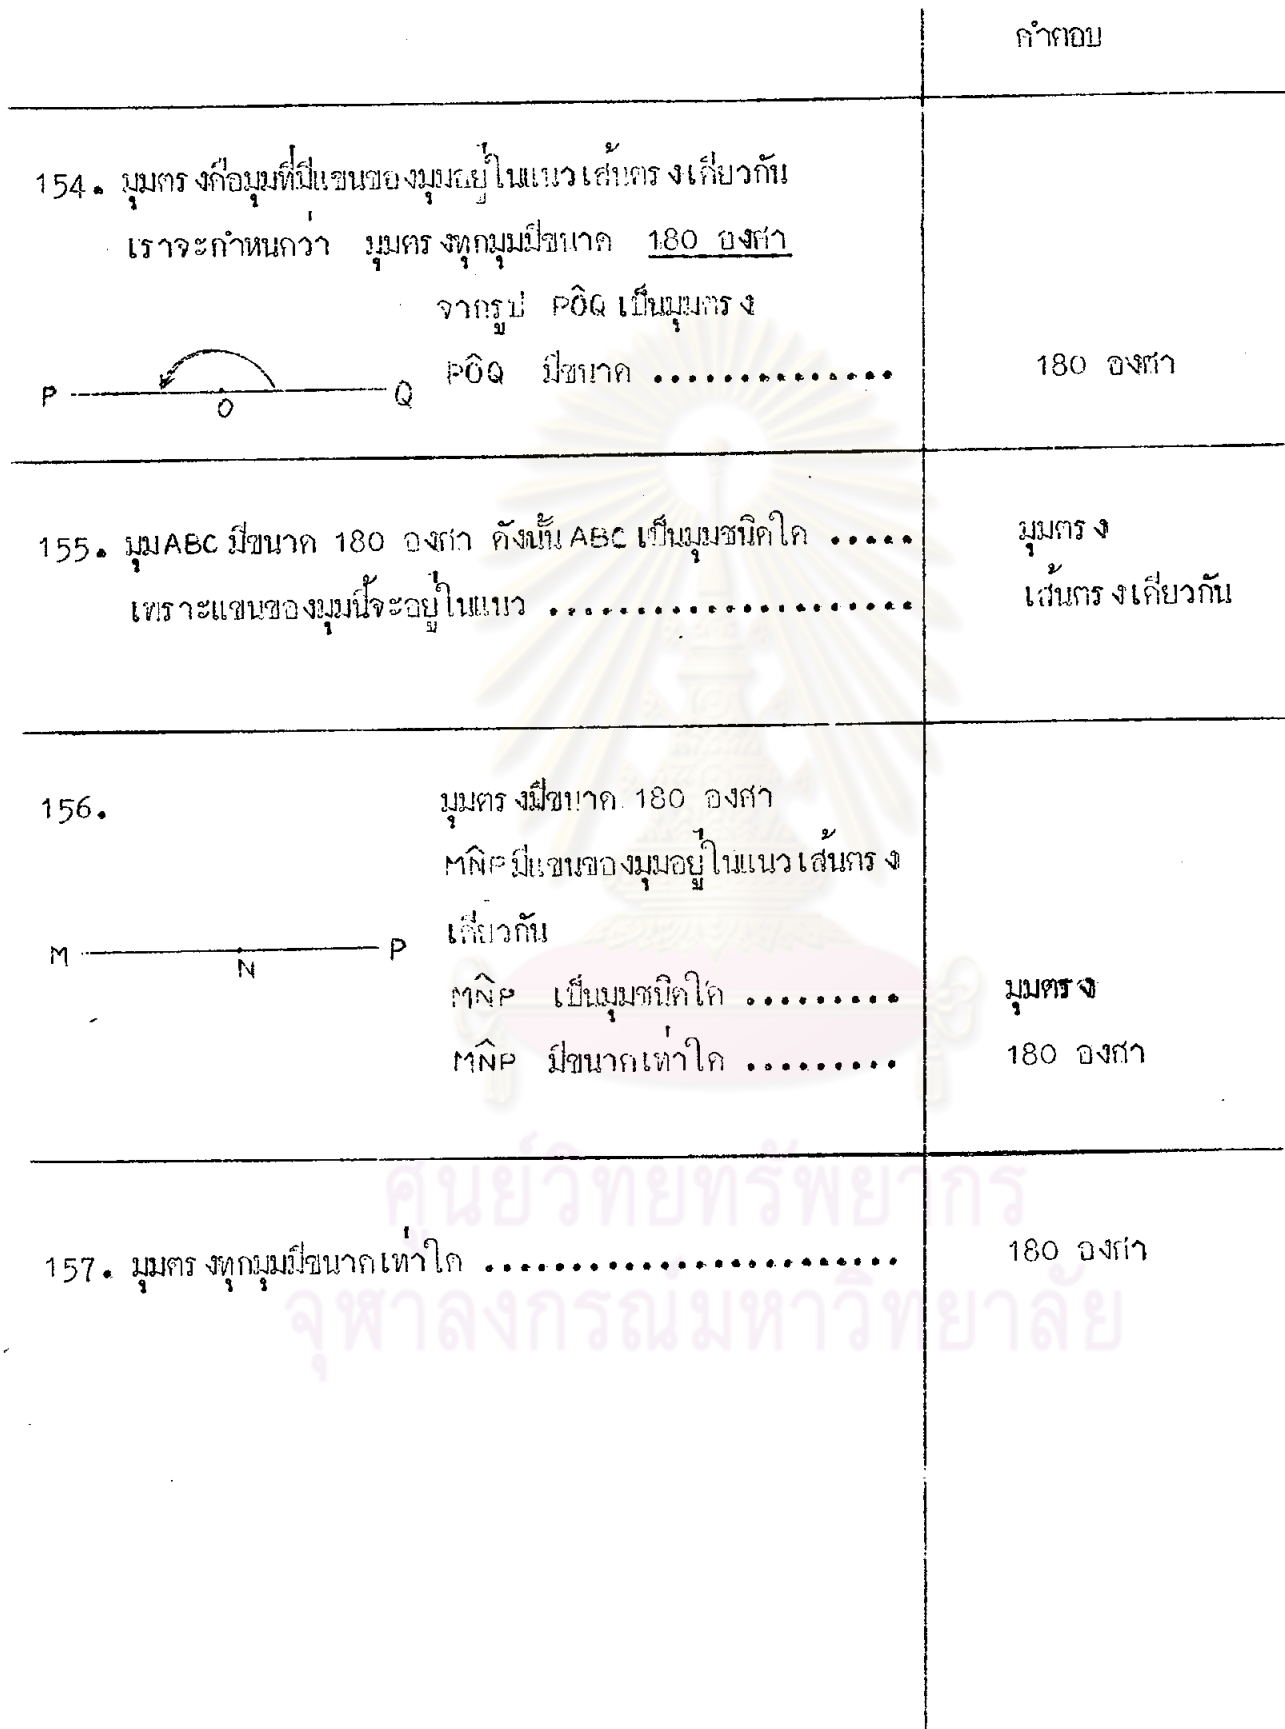 คำตอบ
154. มุมตรงคือมุมที่มีแขนของมุมอยู่ในแนวเส้นตรงเดียวกัน
เราจะกำหนดว่า มุมตรงทุกมุมมีขนาด 180 องศา
จากรูป PÔQ เป็นมุมตรง
P O Q PÔQ มีขนาด .............. 180 องศา
155. มุมABC มีขนาด 180 องศา ดังนั้น ABC เป็นมุมชนิดใด ..... มุมตรง
เพราะแขนของมุมนี้จะอยู่ในแนว ..................... เส้นตรงเดียวกัน
156. มุมตรงมีขนาด 180 องศา
MN̂P มีแขนของมุมอยู่ในแนวเส้นตรง
เดียวกัน
M N P
MN̂P เป็นมุมชนิดใด ......... มุมตรง
MN̂P มีขนาดเท่าใด ......... 180 องศา
ศูนย์วิทยทรัพยากร
157. มุมตรงทุกมุมมีขนาดเท่าใด ........................ 180 องศา
จุฬาลงกรณ์มหาวิทยาลัย